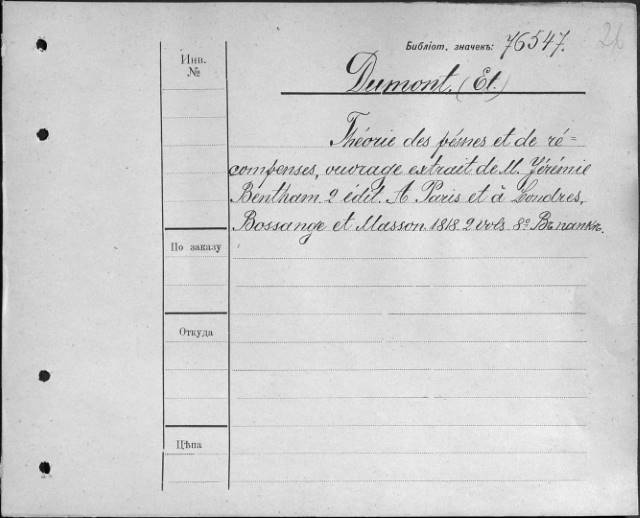 Библiот. значекъ: 76547.
26
Инв.
№
Dumont, (Et.)
Théorie des peines et de ré=
compenses, ouvrage extrait de M. Jérémie
Bentham 2 édit. A Paris et à Londres,
Bossange et Masson 1818 2 vols 8º Въ папкѣ.
По заказу
Откуда
Цѣна